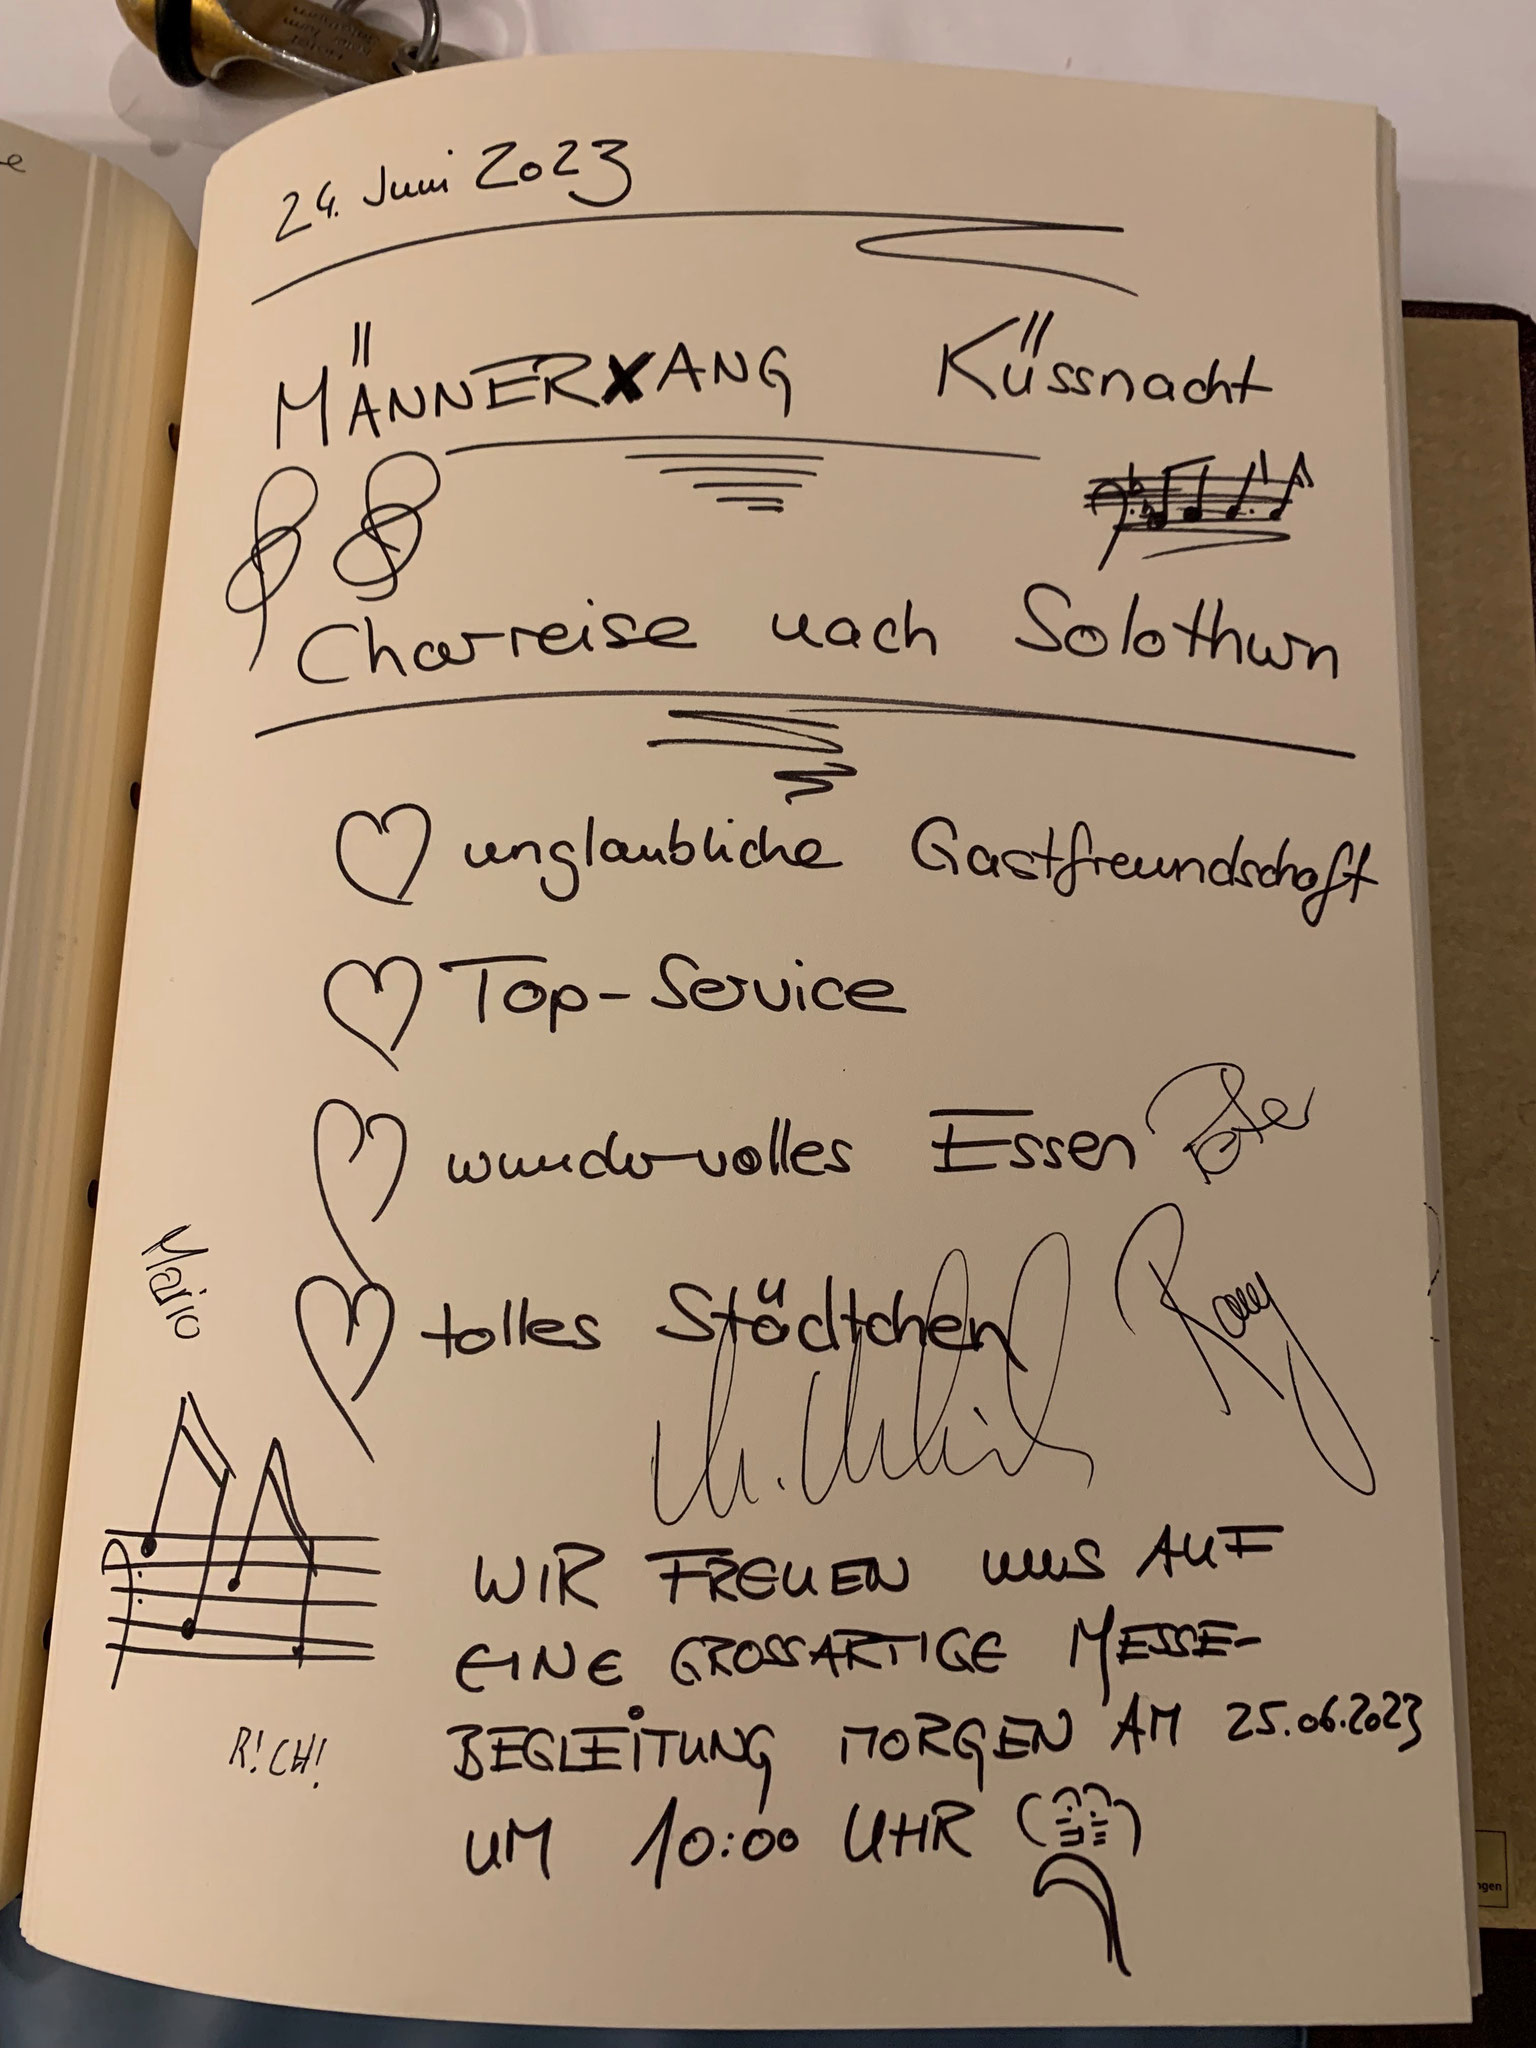 24. Juni 2023
MÄNNERXANG Küssnacht
Chorreise nach Solothurn
unglaubliche Gastfreundschaft
Top-Service
wundervolles Essen
Peter
Mario
tolles Städtchen
Romy
WIR FREUEN uns AUF
EINE GROSSARTIGE MESSE-
BEGLEITUNG MORGEN AM 25.06.2023
UM 10:00 UHR
R!CH!
ngen